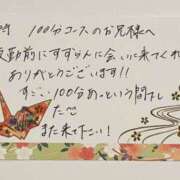 100分コースのお兄様へ
勤前にすずネに会いに来てくれ
ありがとうございます!!
すごい100分あっという間でし
た
また来て下さい!